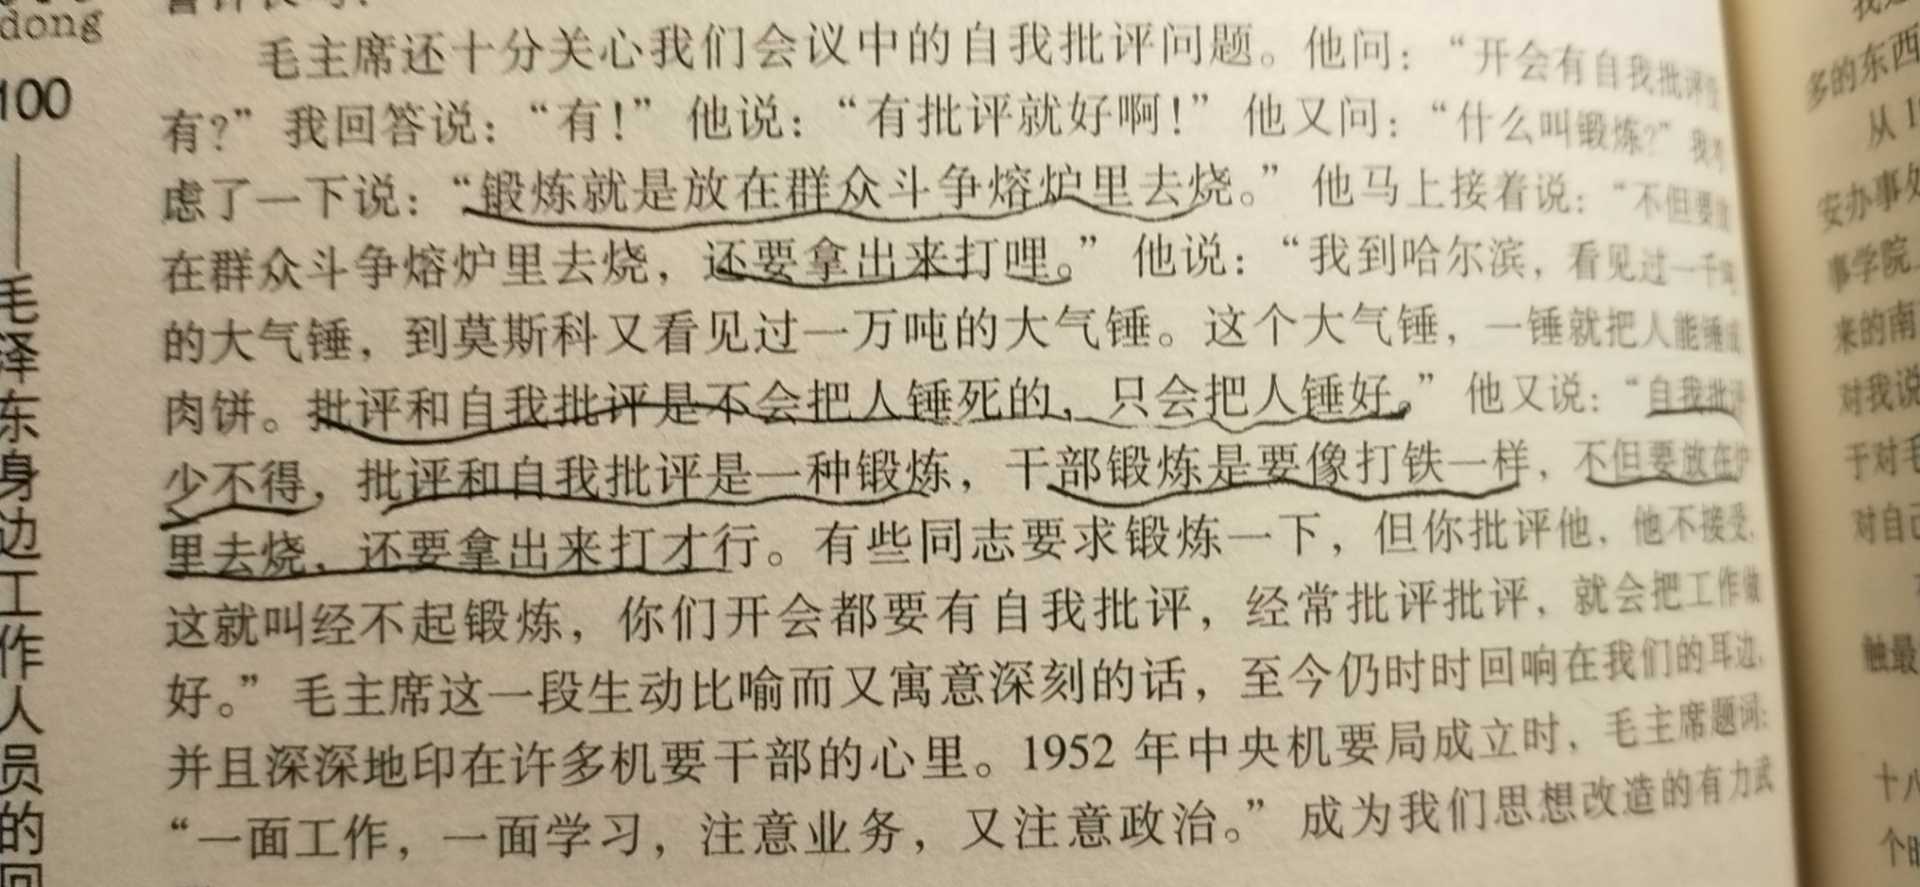 dong
100
毛泽东身边工作人员的回
毛主席还十分关心我们会议中的自我批评问题。他问：“开会有自我批评没
有？”我回答说：“有！”他说：“有批评就好啊！”他又问：“什么叫锻炼？”我
虑了一下说：“锻炼就是放在群众斗争熔炉里去烧。”他马上接着说：“不但要放
在群众斗争熔炉里去烧，还要拿出来打哩。”他说：“我到哈尔滨，看见过一千吨
的大气锤，到莫斯科又看见过一万吨的大气锤。这个大气锤，一锤就把人能锤成
肉饼。批评和自我批评是不会把人锤死的，只会把人锤好。”他又说：“自我批评
少不得，批评和自我批评是一种锻炼，干部锻炼是要像打铁一样，不但要放在炉
里去烧，还要拿出来打才行。有些同志要求锻炼一下，但你批评他，他不接受，
这就叫经不起锻炼，你们开会都要有自我批评，经常批评批评，就会把工作做
好。”毛主席这一段生动比喻而又寓意深刻的话，至今仍时时回响在我们的耳边，
并且深深地印在许多机要干部的心里。1952 年中央机要局成立时，毛主席题词：
“一面工作，一面学习，注意业务，又注意政治。”成为我们思想改造的有力武
多的东西
从 1
安办事处
事学院
来的南
对我说
于对毛
对自己
触最
十八
个时